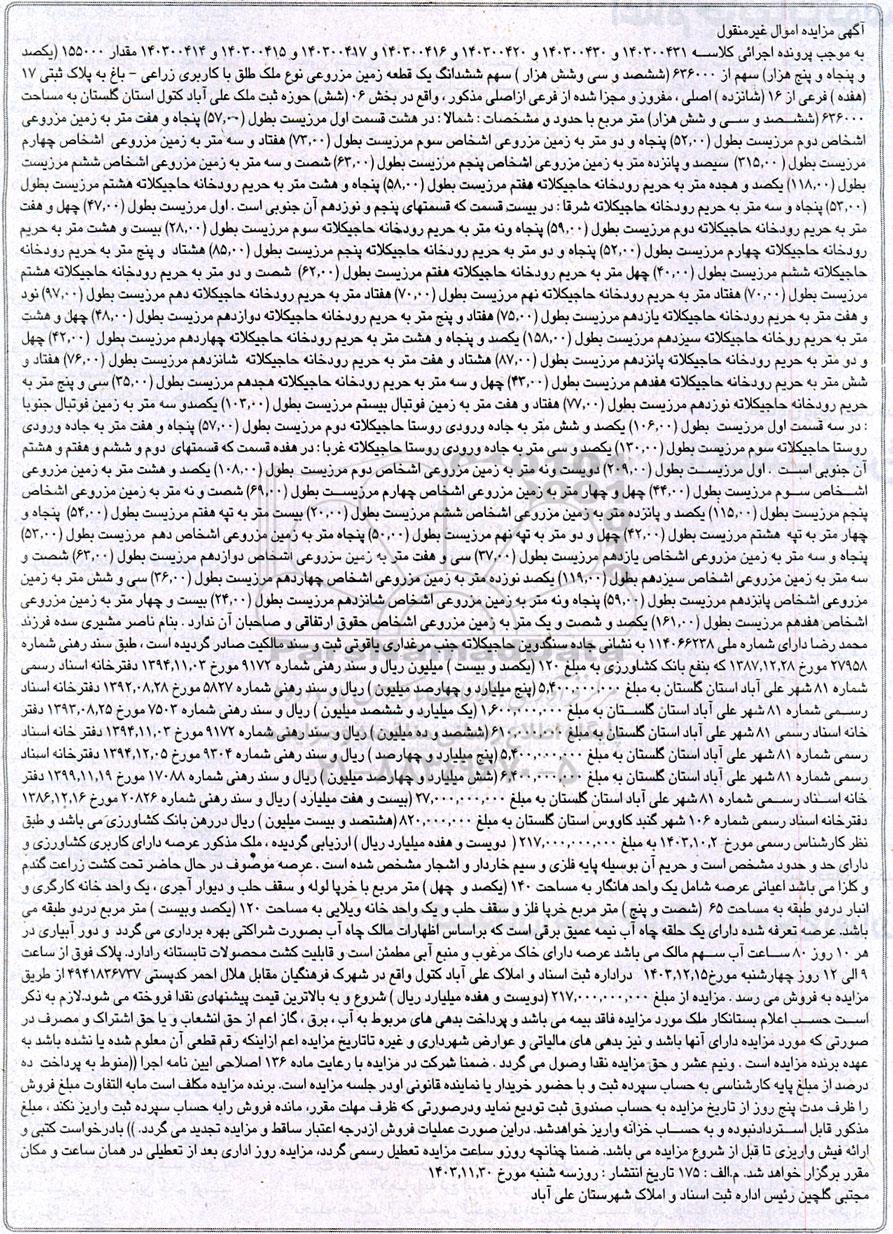 آگهی مزایده اموال غیرمنقول
به موجب پرونده اجرائی کلاسه ۱۴۰۳۰۰۴۳۱ و ۱۴۰۳۰۰۴۳۰ و ۱۴۰۳۰۰۴۲۰ و ۱۴۰۳۰۰۴۱۶ و ۱۴۰۳۰۰۴۱۷ و ۱۴۰۳۰۰۴۱۵ و ۱۴۰۳۰۰۴۱۴ مقدار ۱۵۵۰۰۰ (یکصد
و پنجاه و پنج هزار) سهم از ۶۳۶۰۰۰ (ششصد و سی وشش هزار ) سهم ششدانگ یک قطعه زمین مزروعی نوع ملک طلق با کاربری زراعی - باغ به پلاک ثبتی ۱۷
(هفده ) فرعی از ۱۶ (شانزده ) اصلی ، مفروز و مجزا شده از فرعی ازاصلی مذکور ، واقع در بخش ۰۶ (شش) حوزه ثبت ملک علی آباد کتول استان گلستان به مساحت
۶۳۶۰۰۰ (ششصد و سی و شش هزار) متر مربع با حدود و مشخصات : شمالا : در هشت قسمت اول مرزیست بطول (۵۷,۰۰) پنجاه و هفت متر به زمین مزروعی
اشخاص دوم مرزیست بطول (۵۲,۰۰) پنجاه و دو متر به زمین مزروعی اشخاص سوم مرزیست بطول (۷۳,۰۰) هفتاد و سه متر به زمین مزروعی اشخاص چهارم
مرزیست بطول (۳۱۵,۰۰) سیصد و پانزده متر به زمین مزروعی اشخاص پنجم مرزیست بطول (۶۳,۰۰) شصت و سه متر به زمین مزروعی اشخاص ششم مرزیست
بطول (۱۱۸,۰۰) یکصد و هجده متر به حریم رودخانه حاجیکلاته هفتم مرزیست بطول (۵۸,۰۰) پنجاه و هشت متر به حریم رودخانه حاجیکلاته هشتم مرزیست بطول
(۵۳,۰۰) پنجاه و سه متر به حریم رودخانه حاجیکلاته شرقا : در بیست قسمت که قسمتهای پنجم و نوزدهم آن جنوبی است . اول مرزیست بطول (۴۷,۰۰) چهل و هفت
متر به حریم رودخانه حاجیکلاته دوم مرزیست بطول (۵۹,۰۰) پنجاه ونه متر به حریم رودخانه حاجیکلاته سوم مرزیست بطول (۲۸,۰۰) بیست و هشت متر به حریم
رودخانه حاجیکلاته چهارم مرزیست بطول (۵۲,۰۰) پنجاه و دو متر به حریم رودخانه حاجیکلاته پنجم مرزیست بطول (۸۵,۰۰) هشتاد و پنج متر به حریم رودخانه
حاجیکلاته ششم مرزیست بطول (۴۰,۰۰) چهل متر به حریم رودخانه حاجیکلاته هفتم مرزیست بطول (۶۲,۰۰) شصت و دو متر به حریم رودخانه حاجیکلاته هشتم
مرزیست بطول (۷۰,۰۰) هفتاد متر به حریم رودخانه حاجیکلاته نهم مرزیست بطول (۷۰,۰۰) هفتاد متر به حریم رودخانه حاجیکلاته دهم مرزیست بطول (۹۷,۰۰) نود
و هفت متر به حریم رودخانه حاجیکلاته یازدهم مرزیست بطول (۷۵,۰۰) هفتاد و پنج متر به حریم رودخانه حاجیکلاته دوازدهم مرزیست بطول (۴۸,۰۰) چهل و هشت
متر به حریم روخانه حاجیکلاته سیزدهم مرزیست بطول (۱۵۸,۰۰) یکصد و پنجاه و هشت متر به حریم رودخانه حاجیکلاته چهاردهم مرزیست بطول (۴۲,۰۰) چهل
و دو متر به حریم رودخانه حاجیکلاته پانزدهم مرزیست بطول (۸۷,۰۰) هشتاد و هفت متر به حریم رودخانه حاجیکلاته شانزدهم مرزیست بطول (۷۶,۰۰) هفتاد و
شش متر به حریم رودخانه حاجیکلاته هفدهم مرزیست بطول (۴۳,۰۰) چهل و سه متر به حریم رودخانه حاجیکلاته هجدهم مرزیست بطول (۳۵,۰۰) سی و پنج متر به
حریم رودخانه حاجیکلاته نوزدهم مرزیست بطول (۷۷,۰۰) هفتاد و هفت متر به زمین فوتبال بیستم مرزیست بطول (۱۰۳,۰۰) یکصدو سه متر به زمین فوتبال جنوبا
: در سه قسمت اول مرزیست بطول (۱۰۶,۰۰) یکصد و شش متر به جاده ورودی روستا حاجیکلاته دوم مرزیست بطول (۵۷,۰۰) پنجاه و هفت متر به جاده ورودی
روستا حاجیکلاته سوم مرزیست بطول (۱۳۰,۰۰) یکصد و سی متر به جاده ورودی روستا حاجیکلاته غربا : در هفده قسمت که قسمتهای دوم و ششم و هفتم و هشتم
آن جنوبی است . اول مرزیست بطول (۲۰۹,۰۰) دویست ونه متر به زمین مزروعی اشخاص دوم مرزیست بطول (۱۰۸,۰۰) یکصد و هشت متر به زمین مزروعی
اشخاص سوم مرزیست بطول (۴۴,۰۰) چهل و چهار متر به زمین مزروعی اشخاص چهارم مرزیست بطول (۶۹,۰۰) شصت و نه متر به زمین مزروعی اشخاص
پنجم مرزیست بطول (۱۱۵,۰۰) یکصد و پانزده متر به زمین مزروعی اشخاص ششم مرزیست بطول (۲۰,۰۰) بیست متر به تپه هفتم مرزیست بطول (۵۴,۰۰) پنجاه و
چهار متر به تپه هشتم مرزیست بطول (۴۲,۰۰) چهل و دو متر به تپه نهم مرزیست بطول (۵۰,۰۰) پنجاه متر به زمین مزروعی اشخاص دهم مرزیست بطول (۵۳,۰۰)
پنجاه و سه متر به زمین مزروعی اشخاص یازدهم مرزیست بطول (۳۷,۰۰) سی و هفت متر به زمین مزروعی اشخاص دوازدهم مرزیست بطول (۶۳,۰۰) شصت و
سه متر به زمین مزروعی اشخاص سیزدهم بطول (۱۱۹,۰۰) یکصد نوزده متر به زمین مزروعی اشخاص چهاردهم مرزیست بطول (۳۶,۰۰) سی و شش متر به زمین
مزروعی اشخاص پانزدهم مرزیست بطول (۵۹,۰۰) پنجاه ونه متر به زمین مزروعی اشخاص شانزدهم مرزیست بطول (۲۴,۰۰) بیست و چهار متر به زمین مزروعی
اشخاص هفدهم مرزیست بطول (۱۶۱,۰۰) یکصد و شصت و یک متر به زمین مزروعی اشخاص حقوق ارتفاقی و صاحبان آن ندارد . بنام ناصر مشیری سده فرزند
محمد رضا دارای شماره ملی ۱۱۴۰۶۶۲۳۸ به نشانی جاده سنگدوین حاجیکلاته جنب مرغداری یاقوتی ثبت و سند مالکیت صادر گردیده است ، طبق سند رهنی شماره
۲۷۹۵۸ مورخ ۱۳۸۷,۱۲,۲۸ که بنفع بانک کشاورزی به مبلغ ۱۲۰ (یکصد و بیست ) میلیون ریال و سند رهنی شماره ۹۱۷۲ مورخ ۱۳۹۴,۱۱,۰۳ دفترخانه اسناد رسمی
شماره ۸۱ شهر علی آباد استان گلستان به مبلغ ۵,۴۰۰,۰۰۰,۰۰۰ (پنج میلیارد و چهارصد میلیون ) ریال و سند رهنی شماره ۵۸۲۷ مورخ ۱۳۹۲,۰۸,۲۸ دفترخانه اسناد
رسمی شماره ۸۱ شهر علی آباد استان گلستان به مبلغ ۱,۶۰۰,۰۰۰,۰۰۰ (یک میلیارد و ششصد میلیون ) ریال و سند رهنی شماره ۷۵۰۳ مورخ ۱۳۹۳,۰۸,۲۵ دفتر
خانه اسناد رسمی ۸۱ شهر علی آباد استان گلستان به مبلغ ۶۱۰,۰۰۰,۰۰۰ (ششصد و ده میلیون ) ریال و سند رهنی شماره ۹۱۷۲ مورخ ۱۳۹۴,۱۱,۰۳ دفتر خانه اسناد
رسمی شماره ۸۱ شهر علی آباد استان گلستان به مبلغ ۵,۴۰۰,۰۰۰,۰۰۰ (پنج میلیارد و چهارصد ) ریال و سند رهنی شماره ۹۳۰۴ مورخ ۱۳۹۴,۱۲,۰۵ دفترخانه اسناد
رسمی شماره ۸۱ شهر علی آباد استان گلستان به مبلغ ۶,۴۰۰,۰۰۰,۰۰۰ (شش میلیارد و چهارصد میلیون ) ریال و سند رهنی شماره ۱۷۰۸۸ مورخ ۱۳۹۹,۱۱,۱۹ دفتر
خانه اسناد رسمی شماره ۸۱ شهر علی آباد استان گلستان به مبلغ ۲۷,۰۰۰,۰۰۰,۰۰۰ (بیست و هفت میلیارد ) ریال و سند رهنی شماره ۲۰۸۲۶ مورخ ۱۳۸۶,۱۲,۱۶
دفترخانه اسناد رسمی شماره ۱۰۶ شهر گنبد کاووس استان گلستان به مبلغ ۸۲۰,۰۰۰,۰۰۰ (هشتصد و بیست میلیون ) ریال دررهن بانک کشاورزی می باشد و طبق
نظر کارشناس رسمی مورخ ۱۴۰۳,۱۰,۲ به مبلغ ۲۱۷,۰۰۰,۰۰۰,۰۰۰ ( دویست و هفده میلیارد ریال ) ارزیابی گردیده ، ملک مذکور عرصه دارای کاربری کشاورزی و
دارای حد و حدود مشخص است و حریم آن بوسیله پایه فلزی و سیم خاردار و اشجار مشخص شده است . عرصه موصوف در حال حاضر تحت کشت زراعت گندم
و کلزا می باشد اعیانی عرصه شامل یک واحد هانگار به مساحت ۱۴۰ (یکصد و چهل ) متر مربع با خرپا لوله و سقف حلب و دیوار آجری ، یک واحد خانه کارگری و
انبار دردو طبقه به مساحت ۶۵ (شصت و پنج ) متر مربع خرپا فلز و سقف حلب و یک واحد خانه ویلایی به مساحت ۱۲۰ (یکصد وبیست ) متر مربع دردو طبقه می
باشد. عرصه تعرفه شده دارای یک حلقه چاه آب نیمه عمیق برقی است که براساس اظهارات مالک چاه آب بصورت شراکتی بهره برداری می گردد و دور آبیاری در
هر ۱۰ روز ۸۰ ساعت آب سهم مالک می باشد عرصه دارای خاک مرغوب و منبع آبی مطمئن است و قابلیت کشت محصولات تابستانه رادارد. پلاک فوق از ساعت
۹ الی ۱۲ روز چهارشنبه مورخ ۱۴۰۳,۱۲,۱۵ دراداره ثبت اسناد و املاک علی آباد کتول واقع در شهرک فرهنگیان مقابل هلال احمر کدپستی ۴۹۴۱۸۳۶۷۳۷ از طریق
مزایده به فروش می رسد . مزایده از مبلغ ۲۱۷,۰۰۰,۰۰۰,۰۰۰ (دویست و هفده میلیارد ریال ) شروع و به بالاترین قیمت پیشنهادی نقدا فروخته می شود.لازم به ذکر
است حسب اعلام بستانکار ملک مورد مزایده فاقد بیمه می باشد و پرداخت بدهی های مربوط به آب ، برق ، گاز اعم از حق انشعاب و یا حق اشتراک و مصرف در
صورتی که مورد مزایده دارای آنها باشد و نیز بدهی های مالیاتی و عوارض شهرداری و غیره تاتاریخ مزایده اعم ازاینکه رقم قطعی آن معلوم شده یا نشده باشد به
عهده برنده مزایده است . ونیم عشر و حق مزایده نقدا وصول می گردد . ضمنا شرکت در مزایده با رعایت ماده ۱۳۶ اصلاحی ایین نامه اجرا ((منوط به پرداخت ده
درصد از مبلغ پایه کارشناسی به حساب سپرده ثبت و با حضور خریدار یا نماینده قانونی اودر جلسه مزایده است. برنده مزایده مکلف است مابه التفاوت مبلغ فروش
را ظرف مدت پنج روز از تاریخ مزایده به حساب صندوق ثبت تودیع نماید ودرصورتی که ظرف مهلت مقرر، مانده فروش رابه حساب سپرده ثبت واریز نکند ، مبلغ
مذکور قابل استردادنبوده و به حساب خزانه واریز خواهدشد. دراین صورت عملیات فروش ازدرجه اعتبار ساقط و مزایده تجدید می گردد. )) بادرخواست کتبی و
ارائه فیش واریزی تا قبل از شروع مزایده می باشد. ضمنا چنانچه روزو ساعت مزایده تعطیل رسمی گردد، مزایده روز اداری بعد از تعطیلی در همان ساعت و مکان
مقرر برگزار خواهد شد. م.الف : ۱۷۵ تاریخ انتشار : روزسه شنبه مورخ ۱۴۰۳,۱۱,۳۰
مجتبی گلچین رئیس اداره ثبت اسناد و املاک شهرستان علی آباد